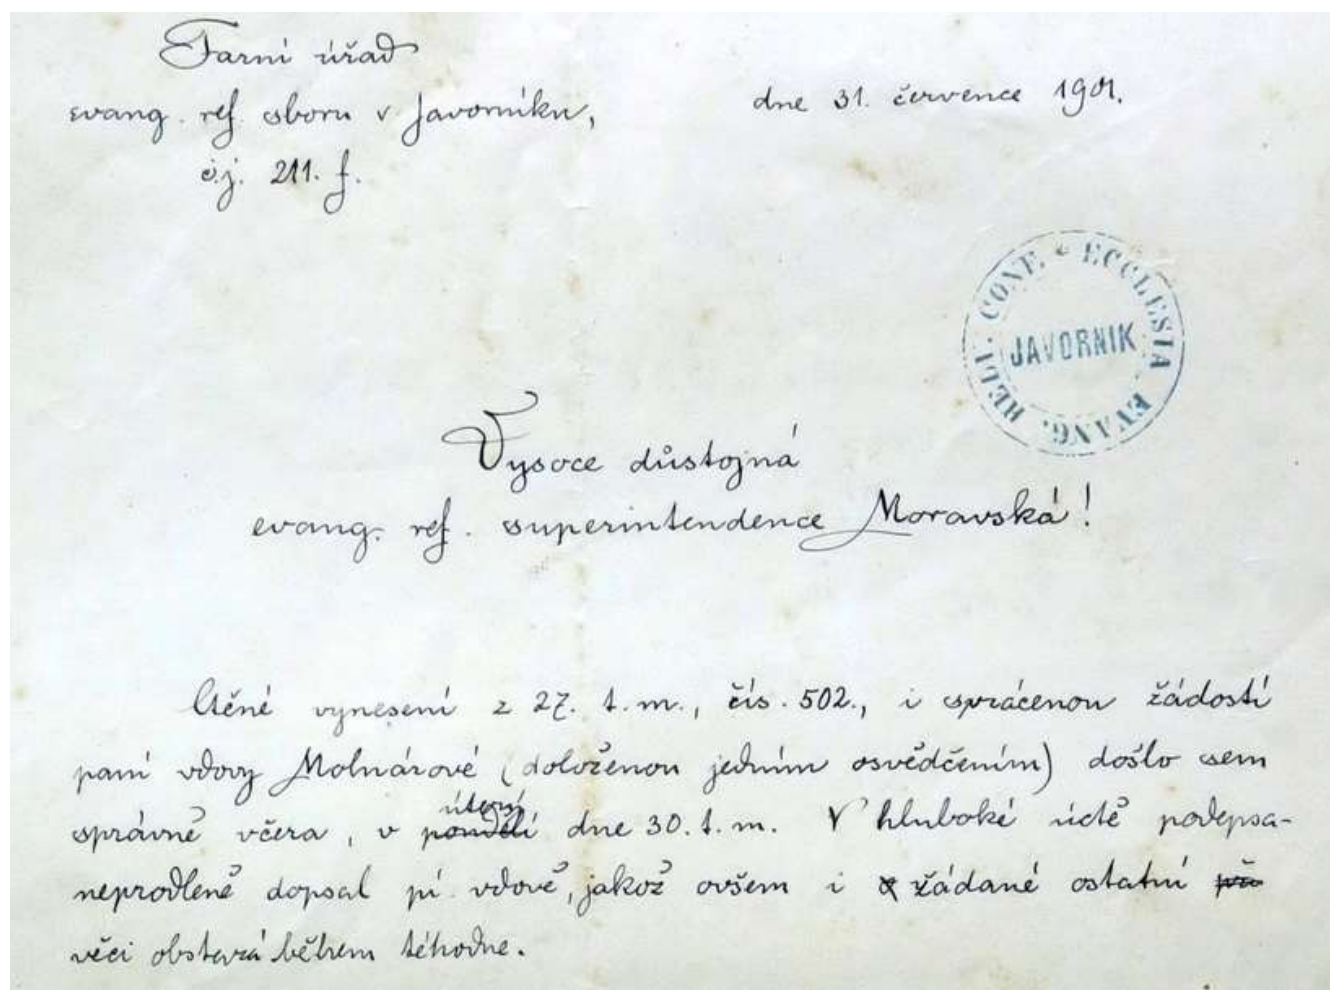 Farní úřad
evang. ref. sboru v Javorníku,
č.j. 211. f.
dne 31. července 1901.
ECCLESIA EVANG. HELV. CONF.
JAVORNIK
Vysoce důstojná
evang. ref. superintendence Moravská!
Ctěné vynesení z 27. t. m., čís. 502., i s žádostí
paní vdovy Molnárové (doloženou jedním osvědčením) došlo sem
správně včera, v úterý dne 30. t. m. V hluboké úctě podepsa-
neprodleně dopsal pí vdově, jakož ovšem i žádané ostatní
věci obstará během téhodne.